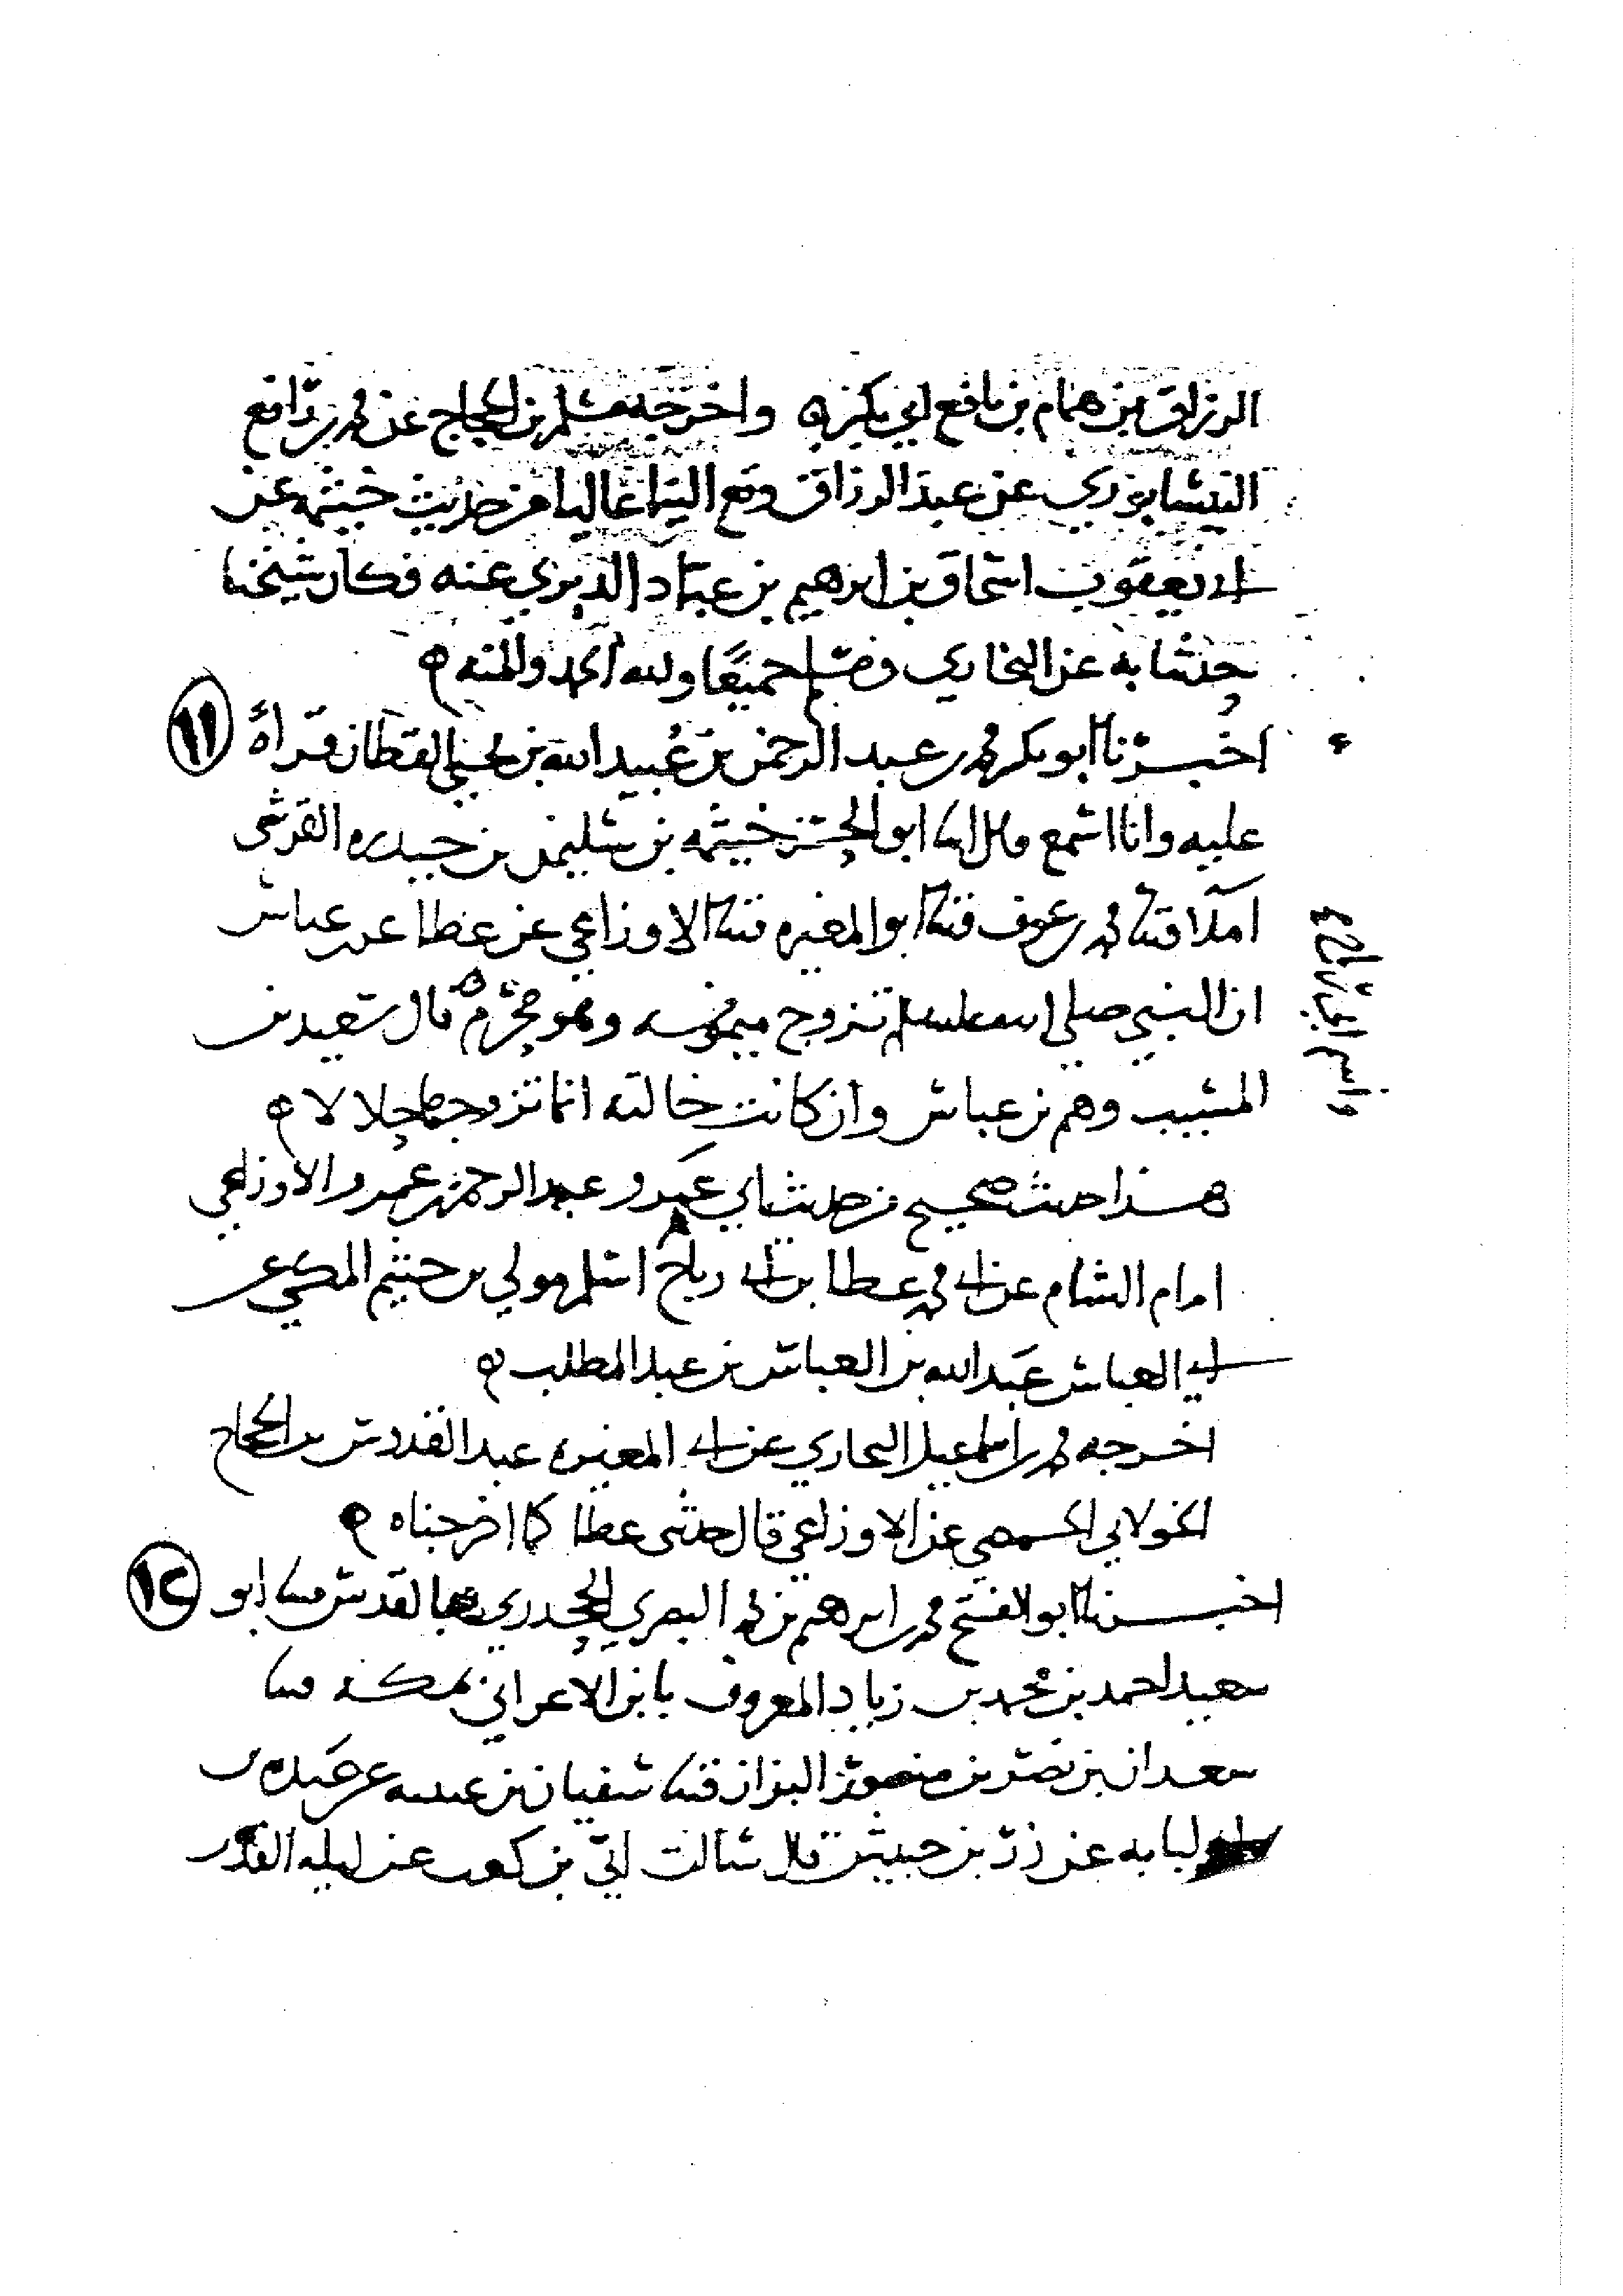 الرزاق بن همام بن نافع ابي بكر به واخرجه مسلم بن الحجاج عن محمد بن رافع
النيسابوري عن عبد الرزاق وقع الينا عاليا من حديث خيثمه عن
ابي يعقوب اسحاق بن ابرهيم بن عباد الدبري عنه فكان شيخنا
حدثنا به عن البخاري ومسلم جميعا ولله الحمد والمنه ه
اخبرنا ابو بكر محمد بن عبد الرحمن بن عبيد الله بن يحيي القطان قراة
١١
عليه وانا اسمع قال انبا ابو الحسن خيثمه بن سليمن بن حيدره القرشي
املا قثنا محمد بن عوف قثنا ابو المغيره قثنا الاوزاعي عن عطا عن بن عباس
ان النبي صلى الله عليه وسلم تزوج ميمونه وهو محرم ه قال سعيد بن
المسيب وهم بن عباس وان كانت خالته انما تزوجها حلالا ه
هذا حديث صحيح من حديث ابي عمرو عبد الرحمن بن عمرو الاوزاعي
امام الشام عن ابي محمد عطا بن ابي رباح اسلم مولي بن خثيم المكي عن
ابي العباس عبد الله بن العباس بن عبد المطلب ه
اخرجه محمد بن اسماعيل البخاري عن ابي المغيره عبد القدوس بن الحجاج
الخولاني الحمصي عن الاوزاعي قال حدثني عطا كما اخرجناه ه
اخبرنا ابو الفتح محمد بن ابرهيم بن محمد البصري الجحدري بالقدس قثنا ابو
١٢
سعيد احمد بن محمد بن زياد المعروف بابن الاعرابي بمكه قثنا
سعدان بن نصر بن منصور البزاز قثنا سفيان بن عيينه عن عبده بن
ابي لبابه عن زر بن حبيش قال سالت ابي بن كعب عن ليله القدر